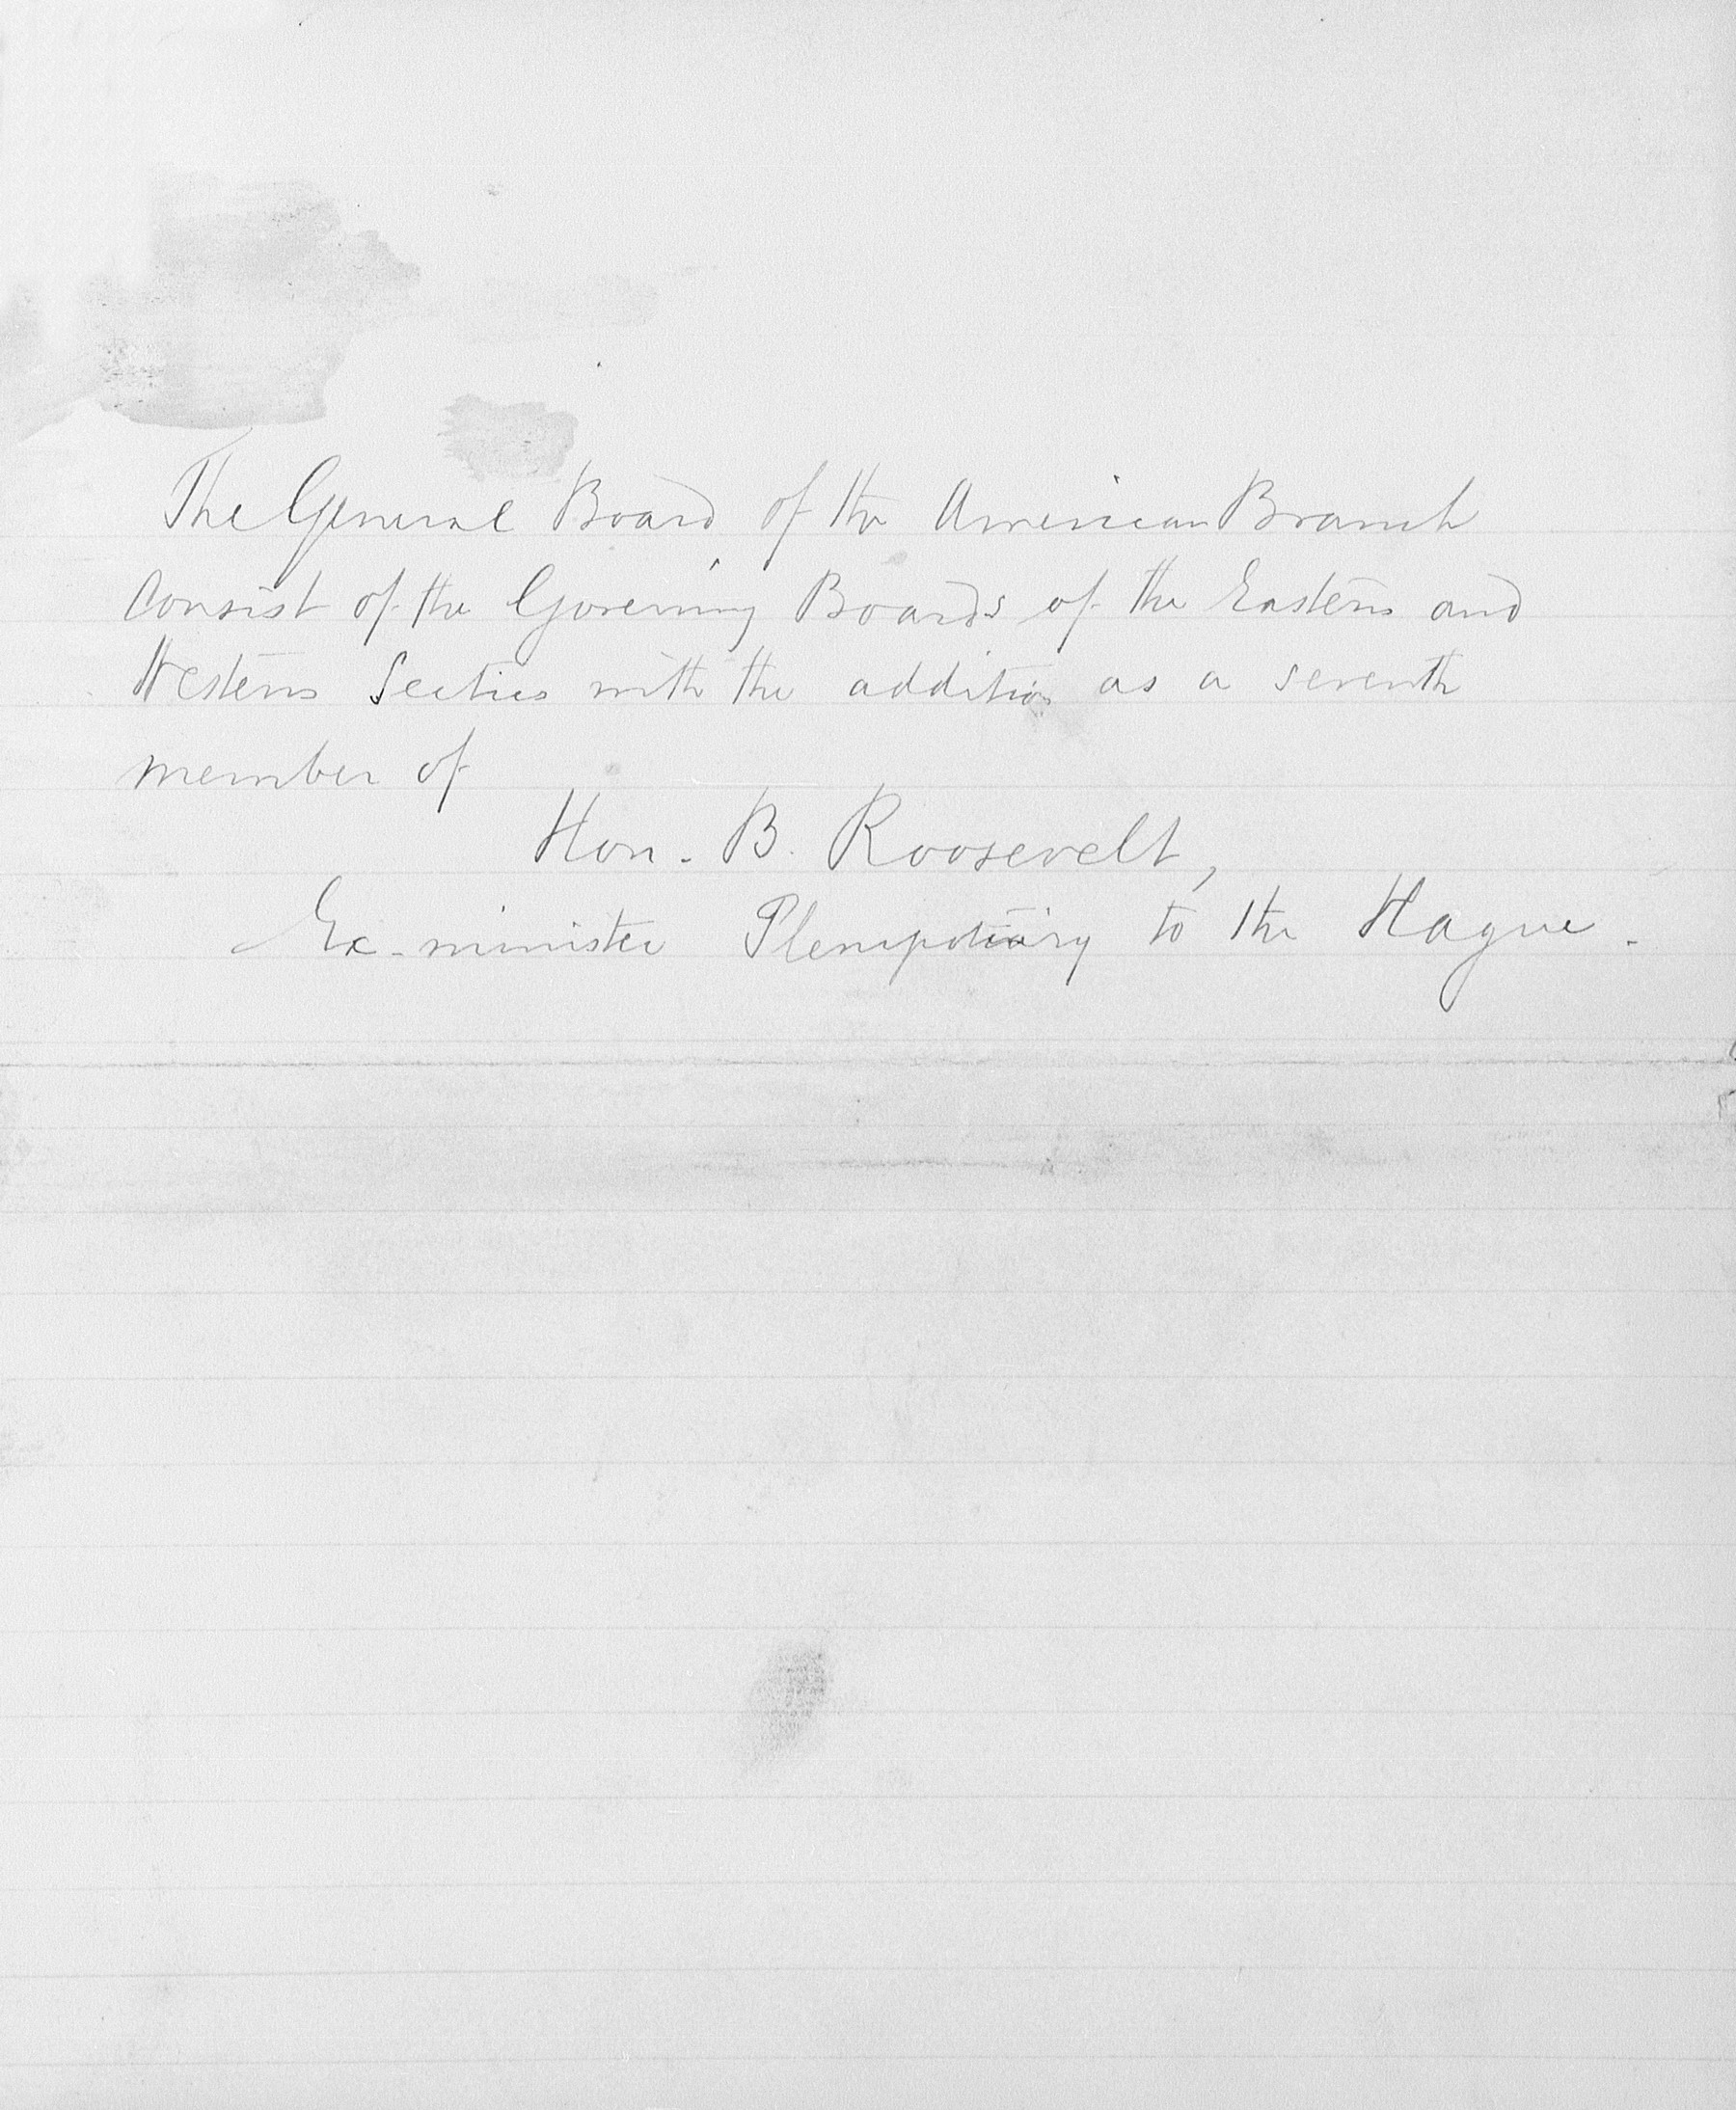 The General Board of the American Branch
Consist of the Governing Boards of the Eastern and
Western Section with the addition as a seventh
member of
Hon. B. Roosevelt,
Ex-minister Plenipotiary to the Hague.